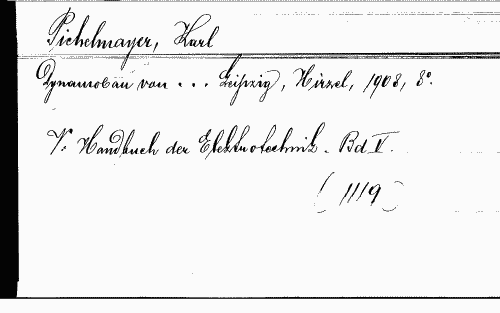 Pichelmayer, Karl
Dynamobau von ... Leipzig, Hirzel, 1908, 8°.
V. Handbuch der Elektrotechnik. Bd V.
(1119)